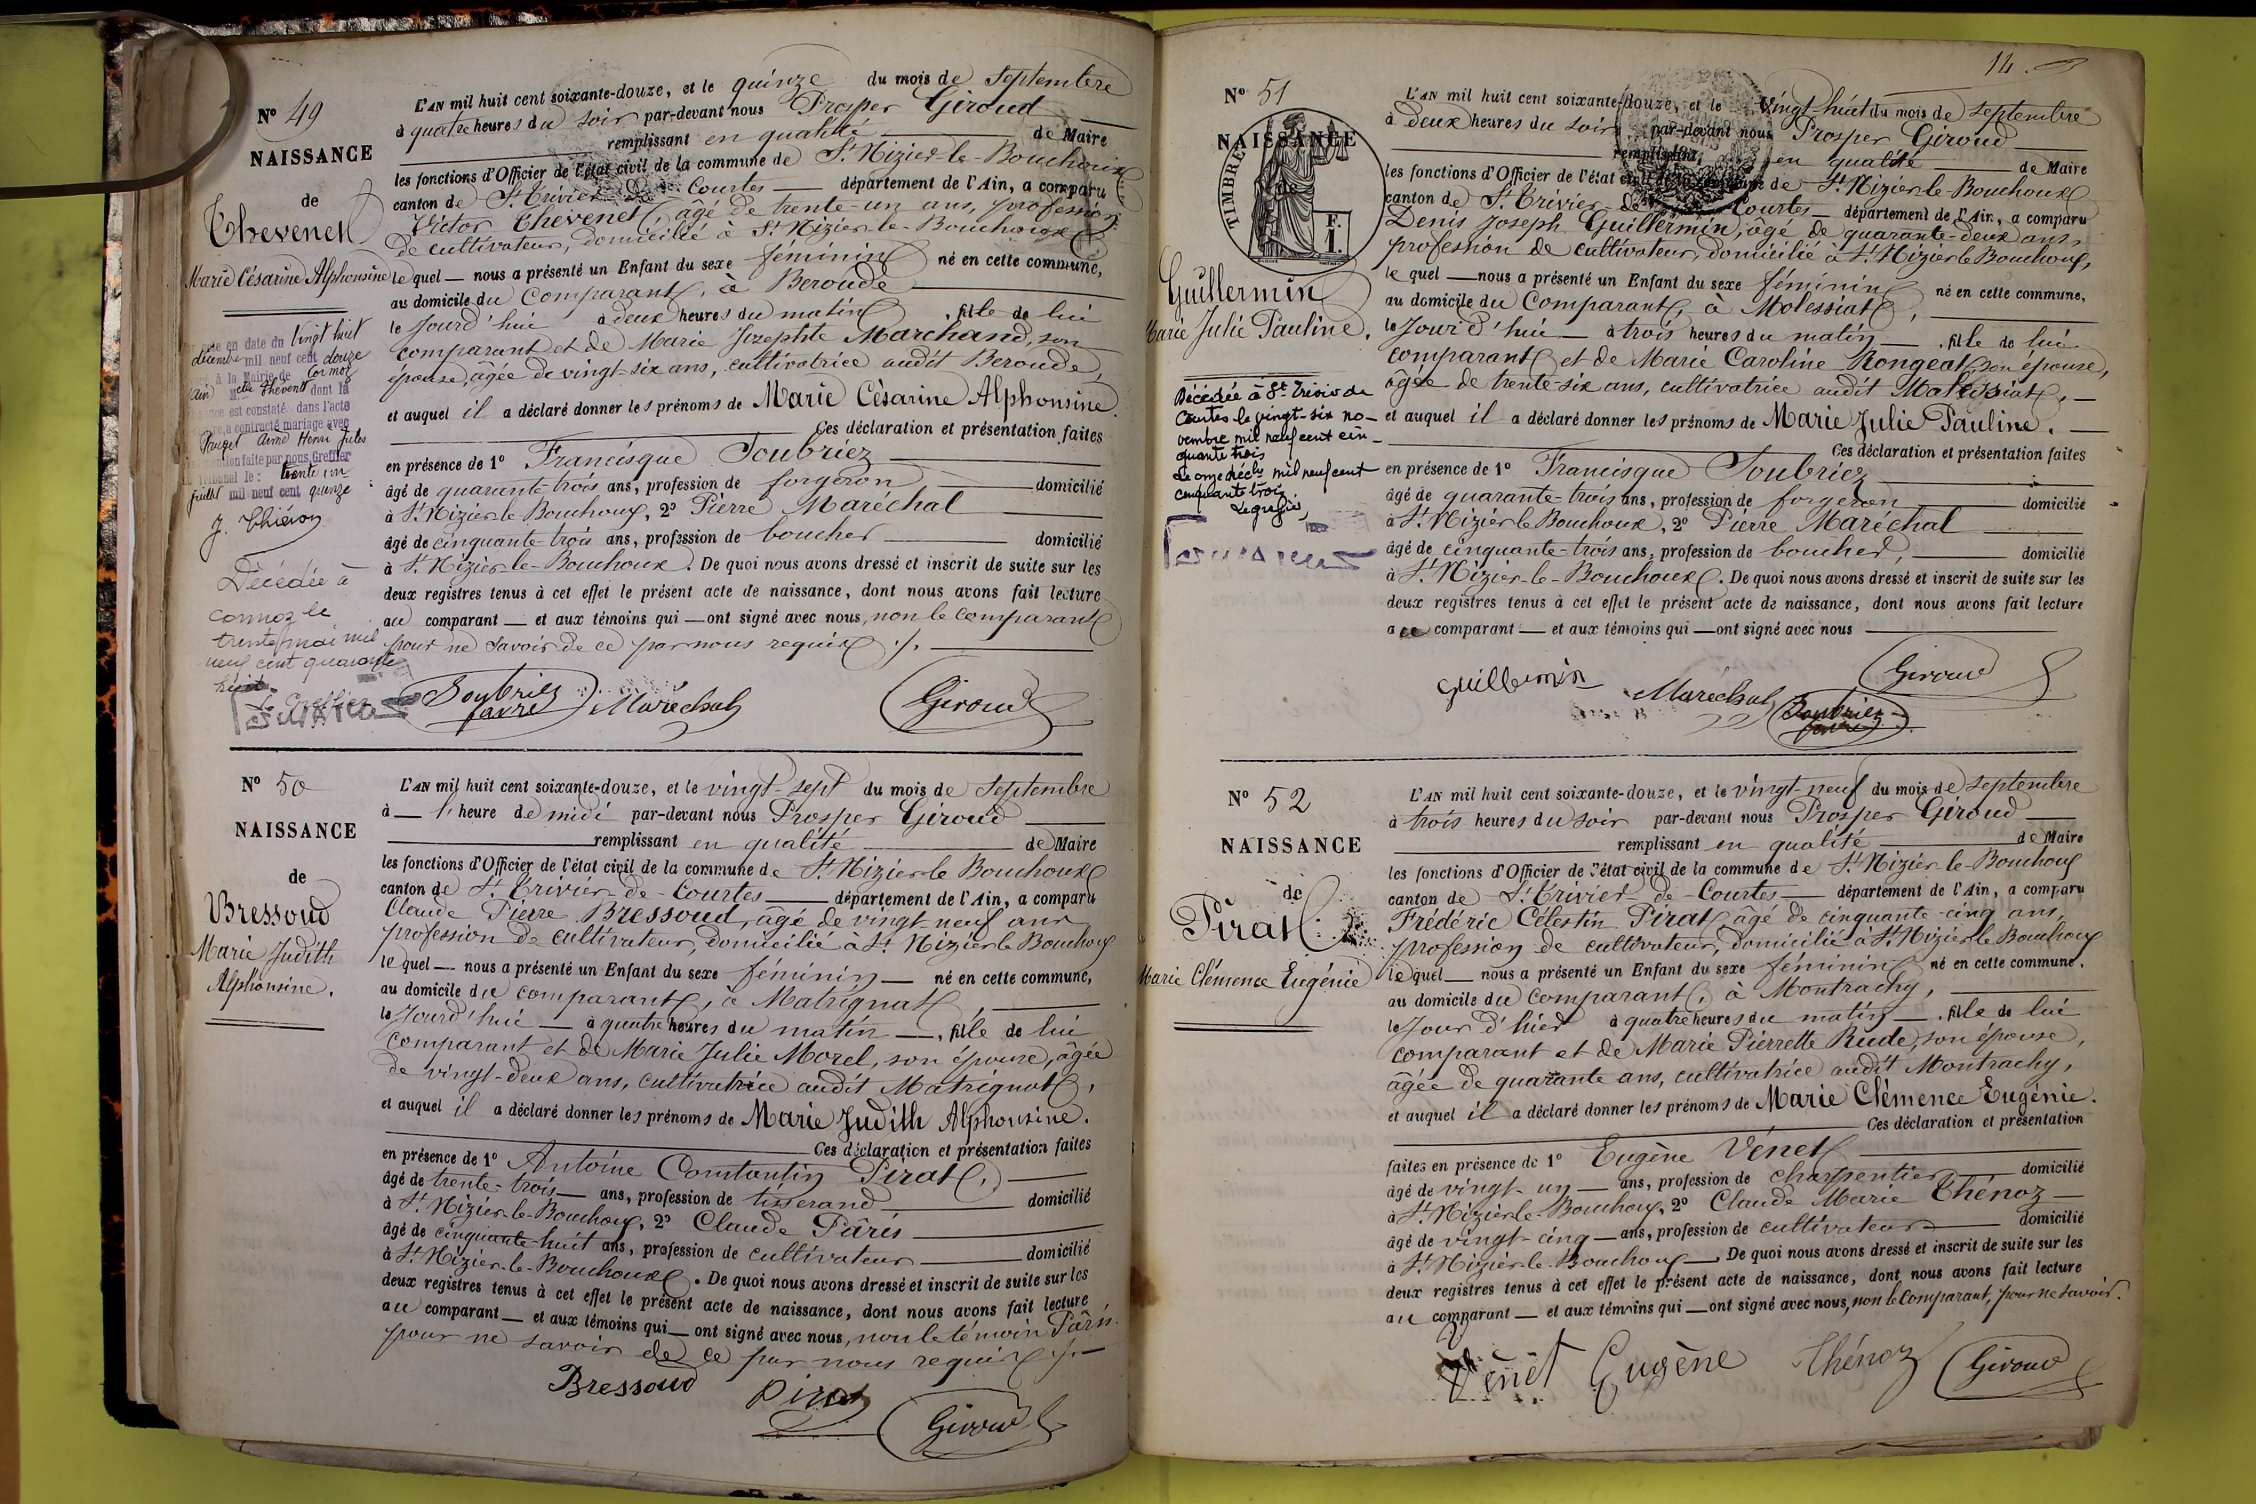 N° 49
NAISSANCE
de
Thevenet
Marie Césarine Alphonsine
en date du vingt huit
décembre mil neuf cent douze
à la Mairie de Cormoz
(Ain) Melle Thevenet dont la
est constaté dans l'acte
a contracté mariage avec
Aimé Henri Jules
faite par nous, Greffier
le : trente un
juillet mil neuf cent quinze
Décédée à
Cormoz le
trente mai mil
neuf cent quarante
huit
Le Greffier
L'AN mil huit cent soixante-douze, et le quinze du mois de Septembre
à quatre heures du soir par-devant nous Prosper Giroud
remplissant en qualité de Maire
les fonctions d'Officier de l'état civil de la commune de St Nizier-le-Bouchoux
canton de St Trivier de Courtes département de l'Ain, a comparu
Victor Thevenet, âgé de trente-un ans, profession
de cultivateur, domicilié à St Nizier-le-Bouchoux
lequel nous a présenté un Enfant du sexe féminin né en cette commune,
au domicile du Comparant, à Beroude
le Jourd'hui à deux heures du matin, fille de lui
comparant et de Marie Josephte Marchand, son
épouse, âgée de vingt-six ans, cultivatrice audit Beroude,
et auquel il a déclaré donner les prénoms de Marie Césarine Alphonsine.
Ces déclaration et présentation faites
en présence de 1° Francisque Soubriez
âgé de quarante trois ans, profession de forgeron domicilié
à St Nizier le Bouchoux, 2° Pierre Maréchal
âgé de cinquante-trois ans, profession de boucher domicilié
à St Nizier-le-Bouchoux. De quoi nous avons dressé et inscrit de suite sur les
deux registres tenus à cet effet le présent acte de naissance, dont nous avons fait lecture
au comparant et aux témoins qui ont signé avec nous, non le comparant
pour ne savoir de ce par nous requis ./.
Soubriez Maréchal Giroud
N° 50
NAISSANCE
de
Bressoud
Marie Judith
Alphonsine.
L'AN mil huit cent soixante-douze, et le vingt-sept du mois de Septembre
à l'heure de midi par-devant nous Prosper Giroud
remplissant en qualité de Maire
les fonctions d'Officier de l'état civil de la commune de St Nizier le Bouchoux
canton de St Trivier-de-Courtes département de l'Ain, a comparu
Claude Pierre Bressoud, âgé de vingt-neuf ans
profession de cultivateur, domicilié à St Nizier le Bouchoux
lequel nous a présenté un Enfant du sexe féminin né en cette commune,
au domicile du comparant, à Matrignat,
le Jourd'hui à quatre heures du matin, fille de lui
comparant et de Marie Julie Morel, son épouse, âgée
de vingt-deux ans, cultivatrice audit Matrignat,
et auquel il a déclaré donner les prénoms de Marie Judith Alphonsine.
Ces déclaration et présentation faites
en présence de 1° Antoine Constantin Pirat,
âgé de trente-trois ans, profession de tisserand domicilié
à St Nizier-le-Bouchoux, 2° Claude Pâris
âgé de cinquante-huit ans, profession de cultivateur domicilié
à St Nizier-le-Bouchoux. De quoi nous avons dressé et inscrit de suite sur les
deux registres tenus à cet effet le présent acte de naissance, dont nous avons fait lecture
au comparant et aux témoins qui ont signé avec nous, non le témoin Pâris
pour ne savoir de ce par nous requis ./.
Bressoud Pirat Giroud
14.
N° 51
NAISSANCE
de
TIMBRE
F.
1.
Guillermin
Marie Julie Pauline.
Décédée à St Trivier de
Courtes le vingt-six no-
vembre mil neuf cent cin-
quante trois
Le onze Décbre mil neuf cent
cinquante trois.
Le greffier,
L'AN mil huit cent soixante-douze, et le Vingt-huit du mois de Septembre
à Deux heures du soir par-devant nous Prosper Giroud
remplissant en qualité de Maire
les fonctions d'Officier de l'état civil de la commune de St Nizier-le-Bouchoux
canton de St Trivier-de Courtes département de l'Ain, a comparu
Denis Joseph Guillermin, âgé de quarante-deux ans,
profession de cultivateur, domicilié à St Nizier le Bouchoux,
lequel nous a présenté un Enfant du sexe féminin né en cette commune,
au domicile du Comparant, à Molessiat,
le Jourd'hui à trois heures du matin, fille de lui
comparant et de Marie Caroline Rongeat son épouse,
âgée de trente-six ans, cultivatrice audit Molessiat,
et auquel il a déclaré donner les prénoms de Marie Julie Pauline.
Ces déclaration et présentation faites
en présence de 1° Francisque Soubriez
âgé de quarante-trois ans, profession de forgeron domicilié
à St Nizier le Bouchoux, 2° Pierre Maréchal
âgé de cinquante-trois ans, profession de boucher, domicilié
à St Nizier-le-Bouchoux. De quoi nous avons dressé et inscrit de suite sur les
deux registres tenus à cet effet le présent acte de naissance, dont nous avons fait lecture
au comparant et aux témoins qui ont signé avec nous
Guillermin Maréchal Soubriez Giroud
N° 52
NAISSANCE
de
Pirat
Marie Clémence Eugénie
L'AN mil huit cent soixante-douze, et le vingt-neuf du mois de Septembre
à trois heures du soir par-devant nous Prosper Giroud
remplissant en qualité de Maire
les fonctions d'Officier de l'état civil de la commune de St Nizier-le-Bouchoux
canton de St Trivier-de-Courtes département de l'Ain, a comparu
Frédéric Célestin Pirat âgé de cinquante-cinq ans,
profession de cultivateur, domicilié à St Nizier le Bouchoux
lequel nous a présenté un Enfant du sexe féminin né en cette commune.
au domicile du comparant, à Montrachy,
le Jour d'hier à quatre heures du matin, fille de lui
comparant et de Marie Pierrette Rude, son épouse,
âgée de quarante ans, cultivatrice audit Montrachy,
et auquel il a déclaré donner les prénoms de Marie Clémence Eugénie.
Ces déclaration et présentation
faites en présence de 1° Eugène Vénet
âgé de vingt-un ans, profession de charpentier domicilié
à St Nizier-le-Bouchoux, 2° Claude Marie Thénoz
âgé de vingt-cinq ans, profession de cultivateur domicilié
à St Nizier-le-Bouchoux. De quoi nous avons dressé et inscrit de suite sur les
deux registres tenus à cet effet le présent acte de naissance, dont nous avons fait lecture
au comparant et aux témoins qui ont signé avec nous, non le Comparant, pour ne savoir.
Vénet Eugène Thénoz Giroud